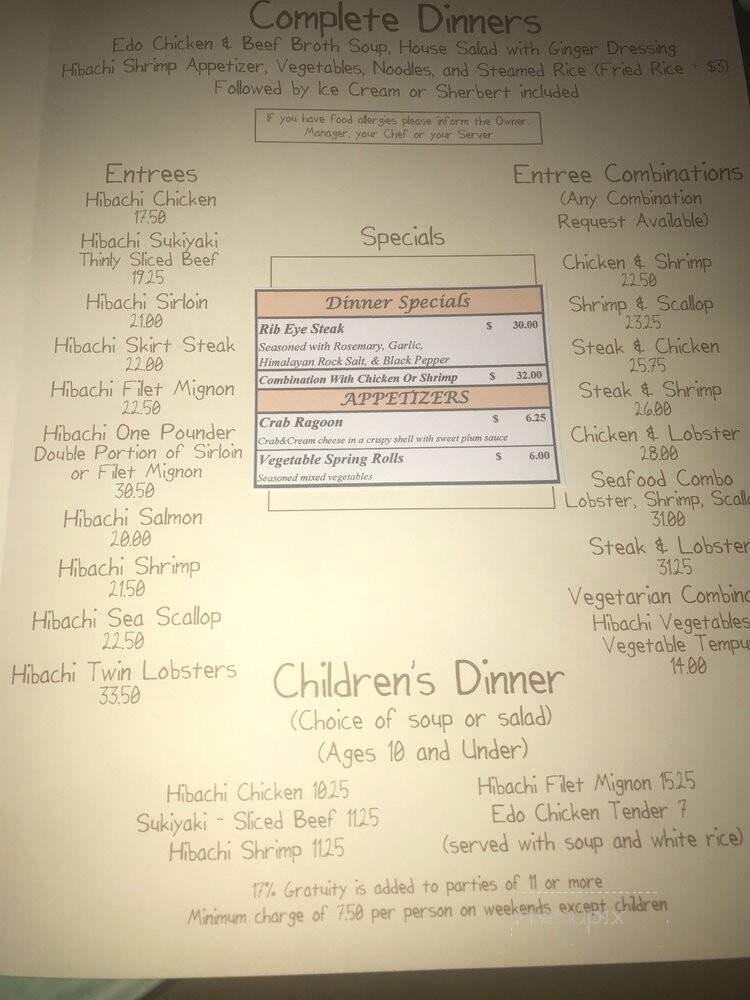 Complete Dinners
Edo Chicken & Beef Broth Soup, House Salad with Ginger Dressing
Hibachi Shrimp Appetizer, Vegetables, Noodles, and Steamed Rice (Fried Rice + $3)
Followed by Ice Cream or Sherbert included
If you have food allergies please inform the Owner,
Manager, your Chef or your Server
Entrees
Hibachi Chicken
17.50
Hibachi Sukiyaki
Thinly Sliced Beef
19.25
Hibachi Sirloin
21.00
Hibachi Skirt Steak
22.00
Hibachi Filet Mignon
22.50
Hibachi One Pounder
Double Portion of Sirloin
or Filet Mignon
30.50
Hibachi Salmon
20.00
Hibachi Shrimp
21.50
Hibachi Sea Scallop
22.50
Hibachi Twin Lobsters
33.50
Specials
Dinner Specials
Rib Eye Steak $ 30.00
Seasoned with Rosemary, Garlic,
Himalayan Rock Salt, & Black Pepper
Combination With Chicken Or Shrimp $ 32.00
APPETIZERS
Crab Ragoon $ 6.25
Crab&Cream cheese in a crispy shell with sweet plum sauce
Vegetable Spring Rolls $ 6.00
Seasoned mixed vegetables
Entree Combinations
(Any Combination
Request Available)
Chicken & Shrimp
22.50
Shrimp & Scallop
23.25
Steak & Chicken
25.75
Steak & Shrimp
26.00
Chicken & Lobster
28.00
Seafood Combo
Lobster, Shrimp, Scall
31.00
Steak & Lobster
31.25
Vegetarian Combina
Hibachi Vegetables
Vegetable Tempu
14.00
Children's Dinner
(Choice of soup or salad)
(Ages 10 and Under)
Hibachi Chicken 10.25
Sukiyaki - Sliced Beef 11.25
Hibachi Shrimp 11.25
Hibachi Filet Mignon 15.25
Edo Chicken Tender 7
(served with soup and white rice)
17% Gratuity is added to parties of 11 or more
Minimum charge of 7.50 per person on weekends except children